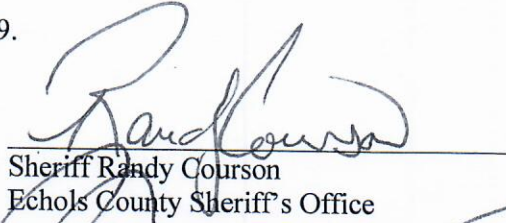 9.
Randy Courson
Sheriff Randy Courson
Echols County Sheriff's Office